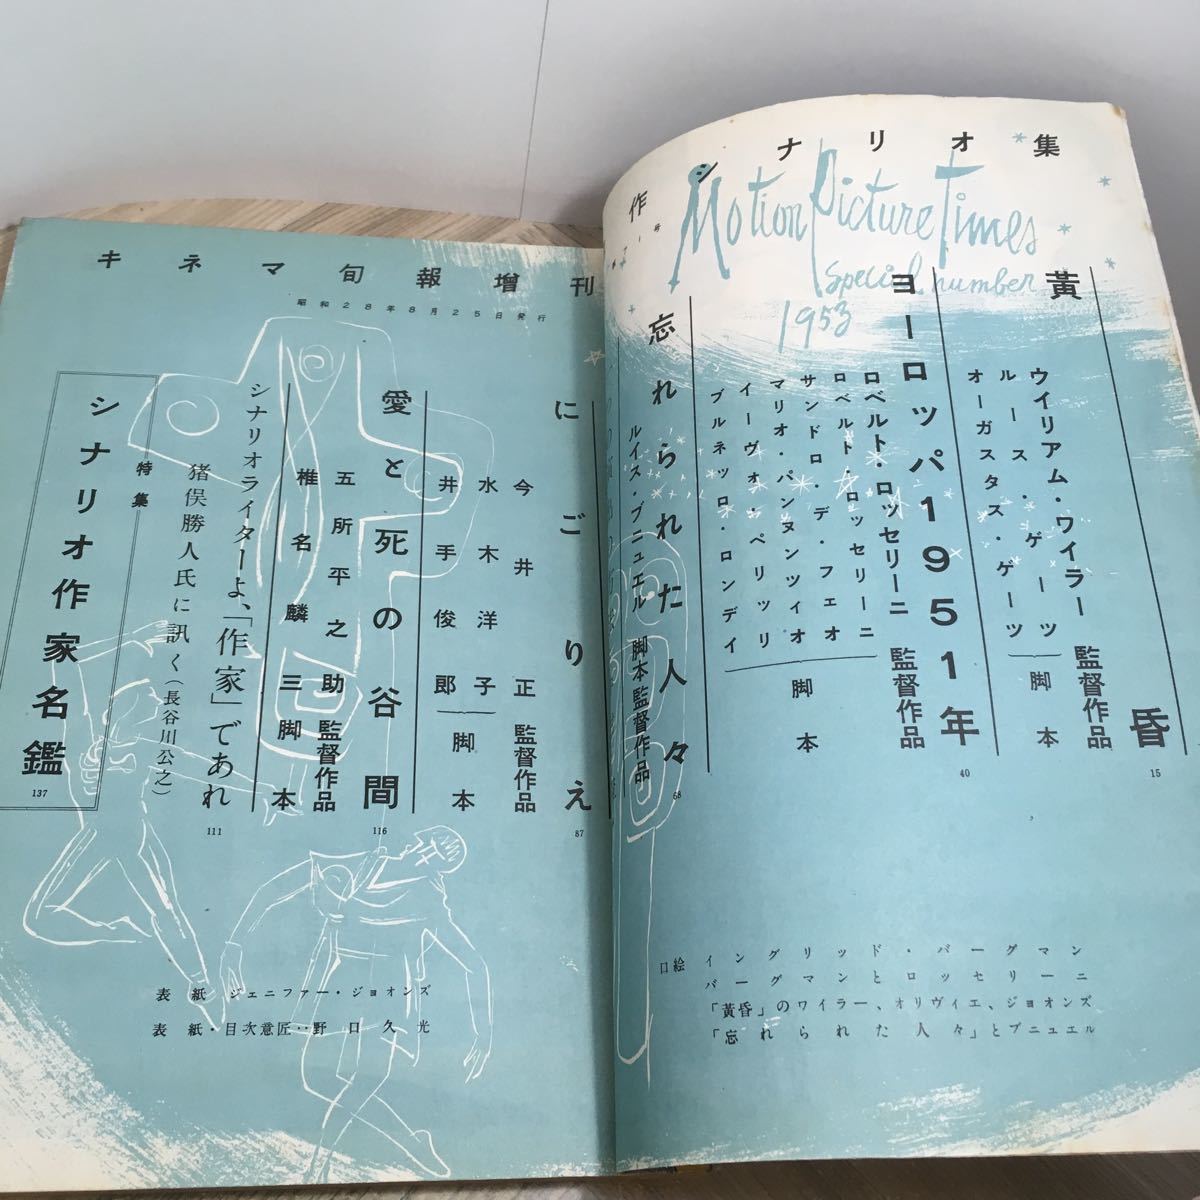 キネマ旬報増刊
作シナリオ集
昭和28年8月25日発行
Motion Picture Times
Special number
1953
黄昏
ウイリアム・ワイラー 監督作品
ルース・ゲーツ
オーガスタス・ゲーツ
脚本
15
ヨーロッパ1951年
ロベルト・ロッセリーニ 監督作品
ロベルト・ロッセリーニ
サンドロ・デ・フェオ
マリオ・パンヌンツイオ
イーヴォ・ペリッリ
ブルネッロ・ロンデイ
脚本
40
忘れられた人々
ルイス・ブニュエル 脚本監督作品
68
にごりえ
今井正 監督作品
水木洋子
井手俊郎
脚本
87
愛と死の谷間
五所平之助 監督作品
椎名麟三 脚本
116
シナリオライターよ、「作家」であれ
猪俣勝人氏に訊く(長谷川公之)
111
特集
シナリオ作家名鑑
137
口絵 イングリッド・バーグマン
バーグマンとロッセリーニ
「黄昏」のワイラー、オリヴィエ、ジョオンズ
「忘れられた人々」とブニュエル
表紙 ジェニファー・ジョオンズ
表紙・目次意匠‥野口久光